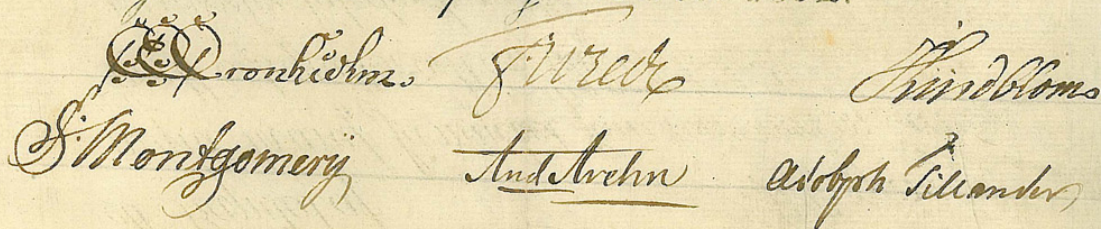 Cronhielm. F: Wrede Hindbloms
G: Montgomerij And Arehn Adolph Tillander